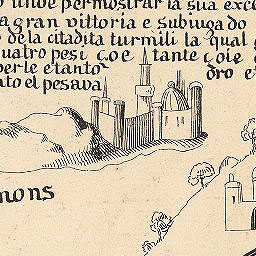 unde per mostrar la sua exce
gran vittoria e subiugado
de la citadita turmili la qual
uatro pesi çoe tante çoie
perle e tanto dro e
ato el pesava
mons